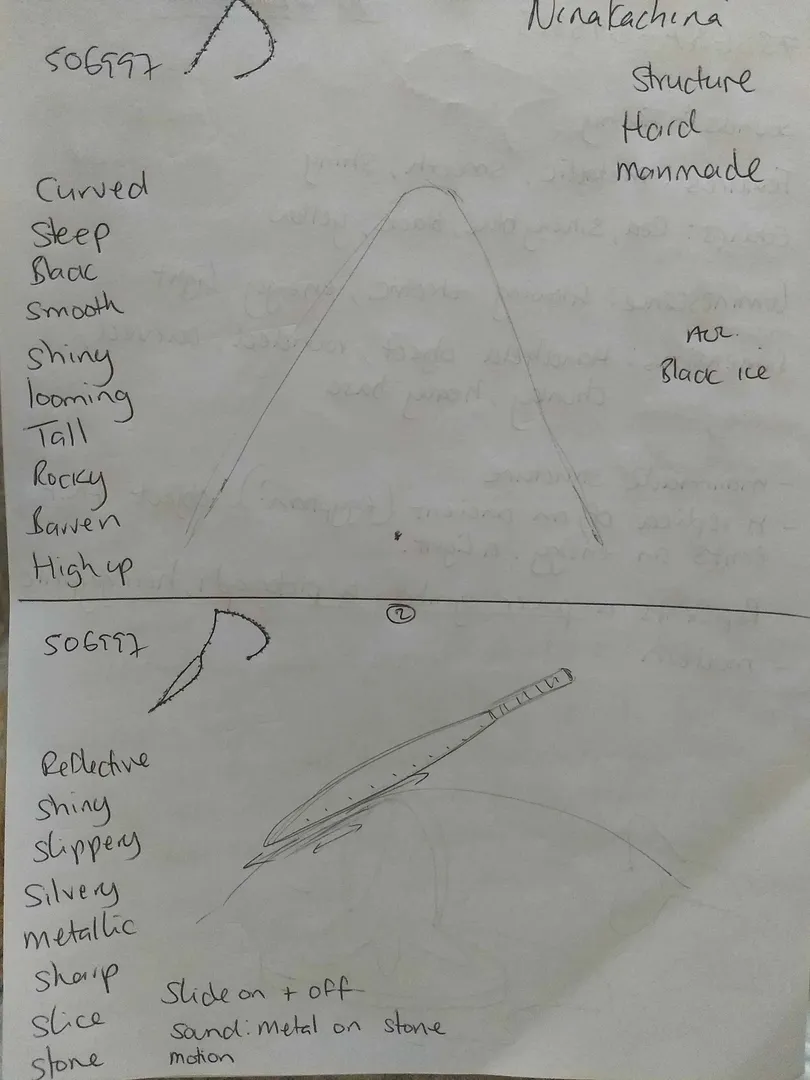 Ninakachina
506997
Structure
Hard
manmade
Curved
Steep
Black
Smooth
Shiny
looming
Tall
Rocky
Barren
High up
AOL.
Black ice
2
506997
Reflective
Shiny
Slippery
Silvery
metallic
Sharp
Slice
Stone
Slide on + off
Sand: metal on stone
motion